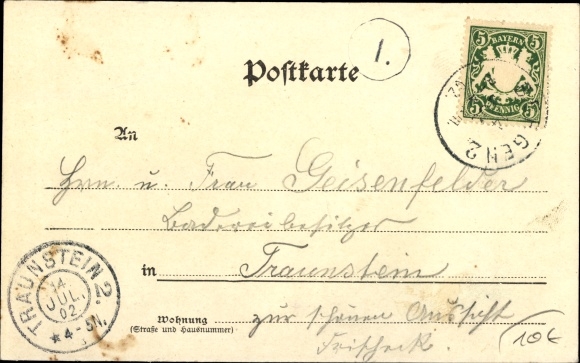 1.
5 BAYERN 5
5 PFENNIG 5
GEN 2
Postkarte
An
Hrn. u. Frau Geisenfelder
Badereibesitzer
in Traunstein
TRAUNSTEIN 2.
14
JUL.
02
4-5N.
Wohnung zur schönen Aussicht
(Straße und Hausnummer)
10€